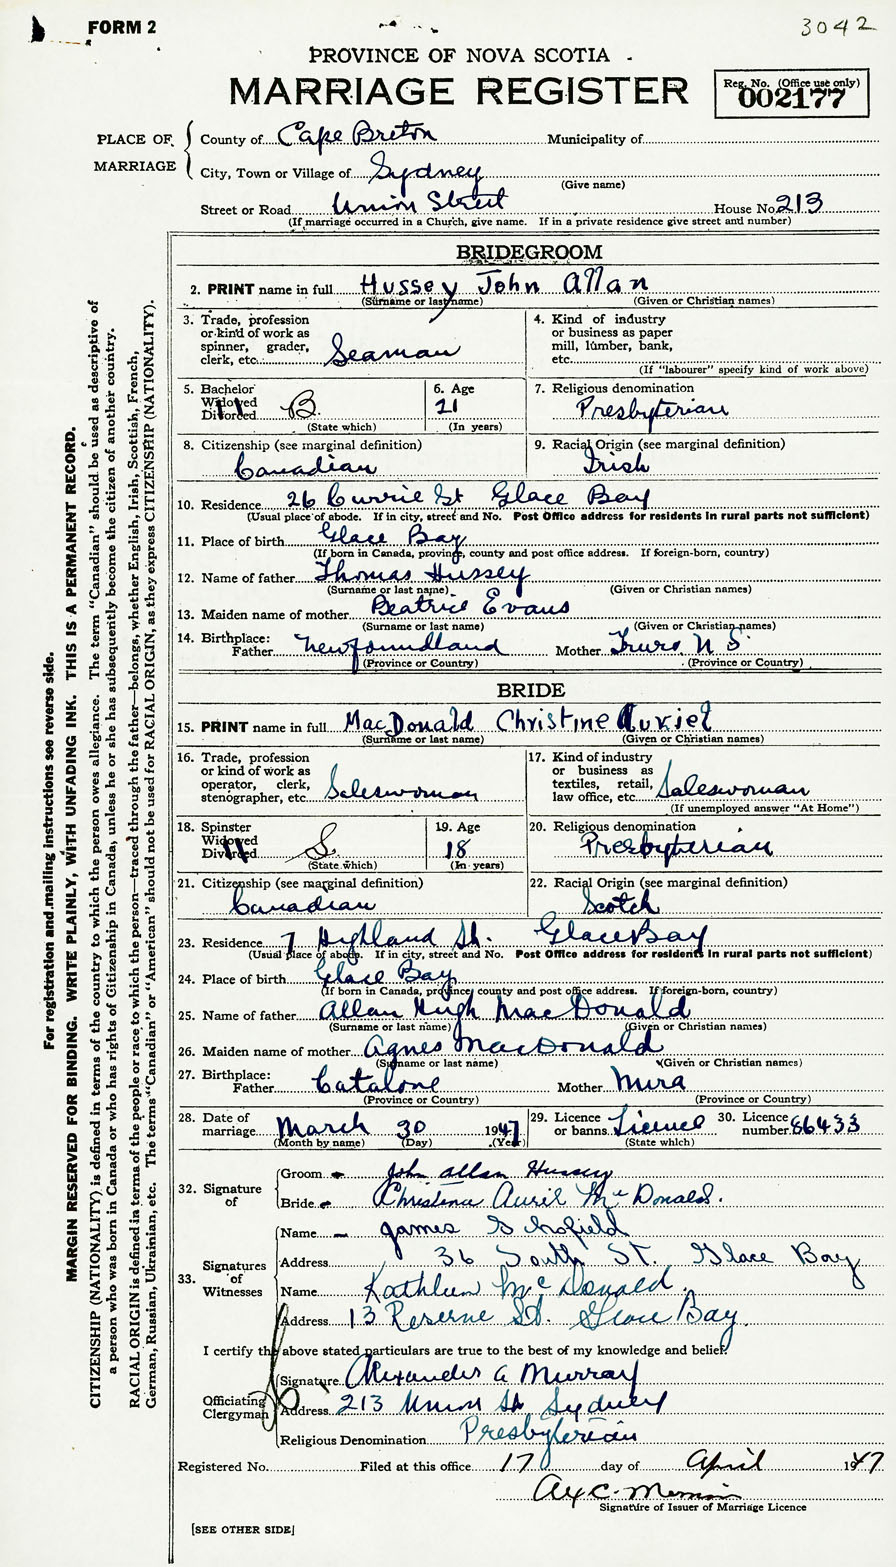 FORM 2
3042
PROVINCE OF NOVA SCOTIA
MARRIAGE REGISTER
Reg. No. (Office use only)
002177
PLACE OF MARRIAGE
County of Cape Breton Municipality of
City, Town or Village of Sydney
(Give name)
Street or Road Union Street House No. 213
(If marriage occurred in a Church, give name. If in a private residence give street and number)
BRIDEGROOM
2. PRINT name in full Hussey John Allan
(Surname or last name) (Given or Christian names)
3. Trade, profession or kind of work as spinner, grader, clerk, etc. Seaman
4. Kind of industry or business as paper mill, lumber, bank, etc.
(If "labourer" specify kind of work above)
5. Bachelor Widowed Divorced B.
(State which)
6. Age 21
(In years)
7. Religious denomination Presbyterian
8. Citizenship (see marginal definition) Canadian
9. Racial Origin (see marginal definition) Irish
10. Residence 26 Currie St Glace Bay
(Usual place of abode. If in city, street and No. Post Office address for residents in rural parts not sufficient)
11. Place of birth Glace Bay
(If born in Canada, province, county and post office address. If foreign-born, country)
12. Name of father Thomas Hussey
(Surname or last name) (Given or Christian names)
13. Maiden name of mother Beatrice Evans
(Surname or last name) (Given or Christian names)
14. Birthplace: Father Newfoundland Mother Truro N S.
(Province or Country) (Province or Country)
BRIDE
15. PRINT name in full MacDonald Christine Auriel
(Surname or last name) (Given or Christian names)
16. Trade, profession or kind of work as operator, clerk, stenographer, etc. Saleswoman
17. Kind of industry or business as textiles, retail, law office, etc. Saleswoman
(If unemployed answer "At Home")
18. Spinster Widowed Divorced S.
(State which)
19. Age 18
(In years)
20. Religious denomination Presbyterian
21. Citizenship (see marginal definition) Canadian
22. Racial Origin (see marginal definition) Scotch
23. Residence 7 Highland St. Glace Bay
(Usual place of abode. If in city, street and No. Post Office address for residents in rural parts not sufficient)
24. Place of birth Glace Bay
(If born in Canada, province, county and post office address. If foreign-born, country)
25. Name of father Allan Hugh MacDonald
(Surname or last name) (Given or Christian names)
26. Maiden name of mother Agnes MacDonald
(Surname or last name) (Given or Christian names)
27. Birthplace: Father Catalone Mother Mira
(Province or Country) (Province or Country)
28. Date of marriage March 30 1947
(Month by name) (Day) (Year)
29. Licence or banns Licence
(State which)
30. Licence number 86433
32. Signature of
Groom John Allan Hussey
Bride Christena Auril McDonald.
33. Signatures of Witnesses
Name James G Schofield
Address 36 South St. Glace Bay
Name Kathleen McDonald.
Address 13 Reserve St. Glace Bay.
I certify the above stated particulars are true to the best of my knowledge and belief.
Officiating Clergyman
Signature Alexander A Murray
Address 213 Union St Sydney
Religious Denomination Presbyterian
Registered No. Filed at this office 17 day of April 1947
Signature of Issuer of Marriage Licence
[SEE OTHER SIDE]
For registration and mailing instructions see reverse side.
MARGIN RESERVED FOR BINDING. WRITE PLAINLY, WITH UNFADING INK. THIS IS A PERMANENT RECORD.
CITIZENSHIP (NATIONALITY) is defined in terms of the country to which the person owes allegiance. The term "Canadian" should be used as descriptive of
a person who was born in Canada or who has rights of Citizenship in Canada, unless he or she has subsequently become the citizen of another country.
RACIAL ORIGIN is defined in terms of the people or race to which the person—traced through the father—belongs, whether English, Irish, Scottish, French,
German, Russian, Ukrainian, etc. The terms "Canadian" or "American" should not be used for RACIAL ORIGIN, as they express CITIZENSHIP (NATIONALITY).